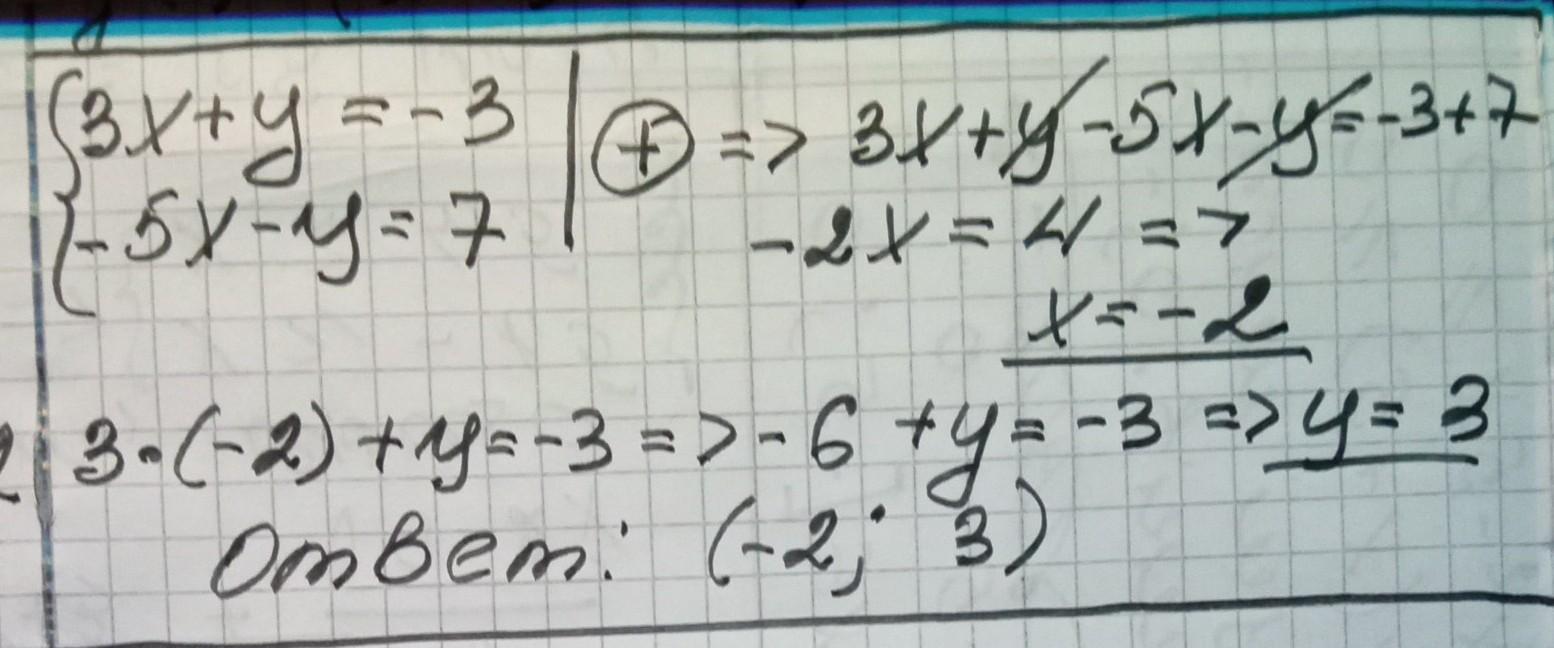 3x+y=-3 | (+) => 3x+y-5x-y=-3+7
-5x-y=7
-2x=4 =>
x=-2
3·(-2)+y=-3=>-6+y=-3=>y=3
Ответ: (-2; 3)